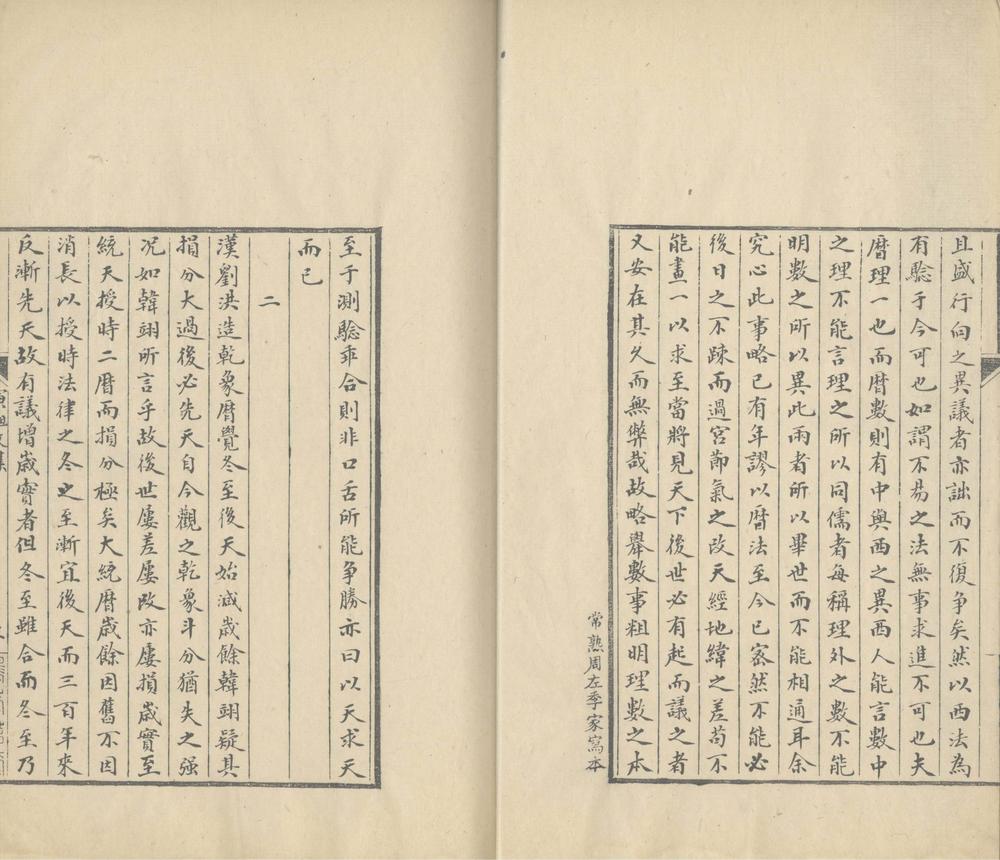 且盛行向之異議者亦詘而不復争矣然以西法為
有騐于今可也如謂不易之法無事求進不可也夫
曆理一也而曆數則有中與西之異西人能言數中
之理不能言理之所以同儒者每稱理外之數不能
明數之所以異此兩者所以畢世而不能相通耳余
究心此事略已有年謬以曆法至今已密然不能必
後日之不踈而過宫節氣之改天經地緯之差苟不
能畫一以求至當將見天下後世必有起而議之者
又安在其久而無弊哉故略舉數事粗明理數之本
常熟周左季家寫本
至于測騐乖合則非口舌所能争勝亦曰以天求天
而已
二
漢劉洪造乾象曆覺冬至後天始減歲餘韓翊疑其
損分大過後必先天自今觀之乾象斗分猶失之强
况如韓翊所言乎故後世屢差屢改亦屢損歲實至
統天授時二曆而損分極矣大統曆歲餘因舊不因
消長以授時法律之冬之至漸宜後天而三百年來
反漸先天故有議增歲實者但冬至雖合而冬至乃